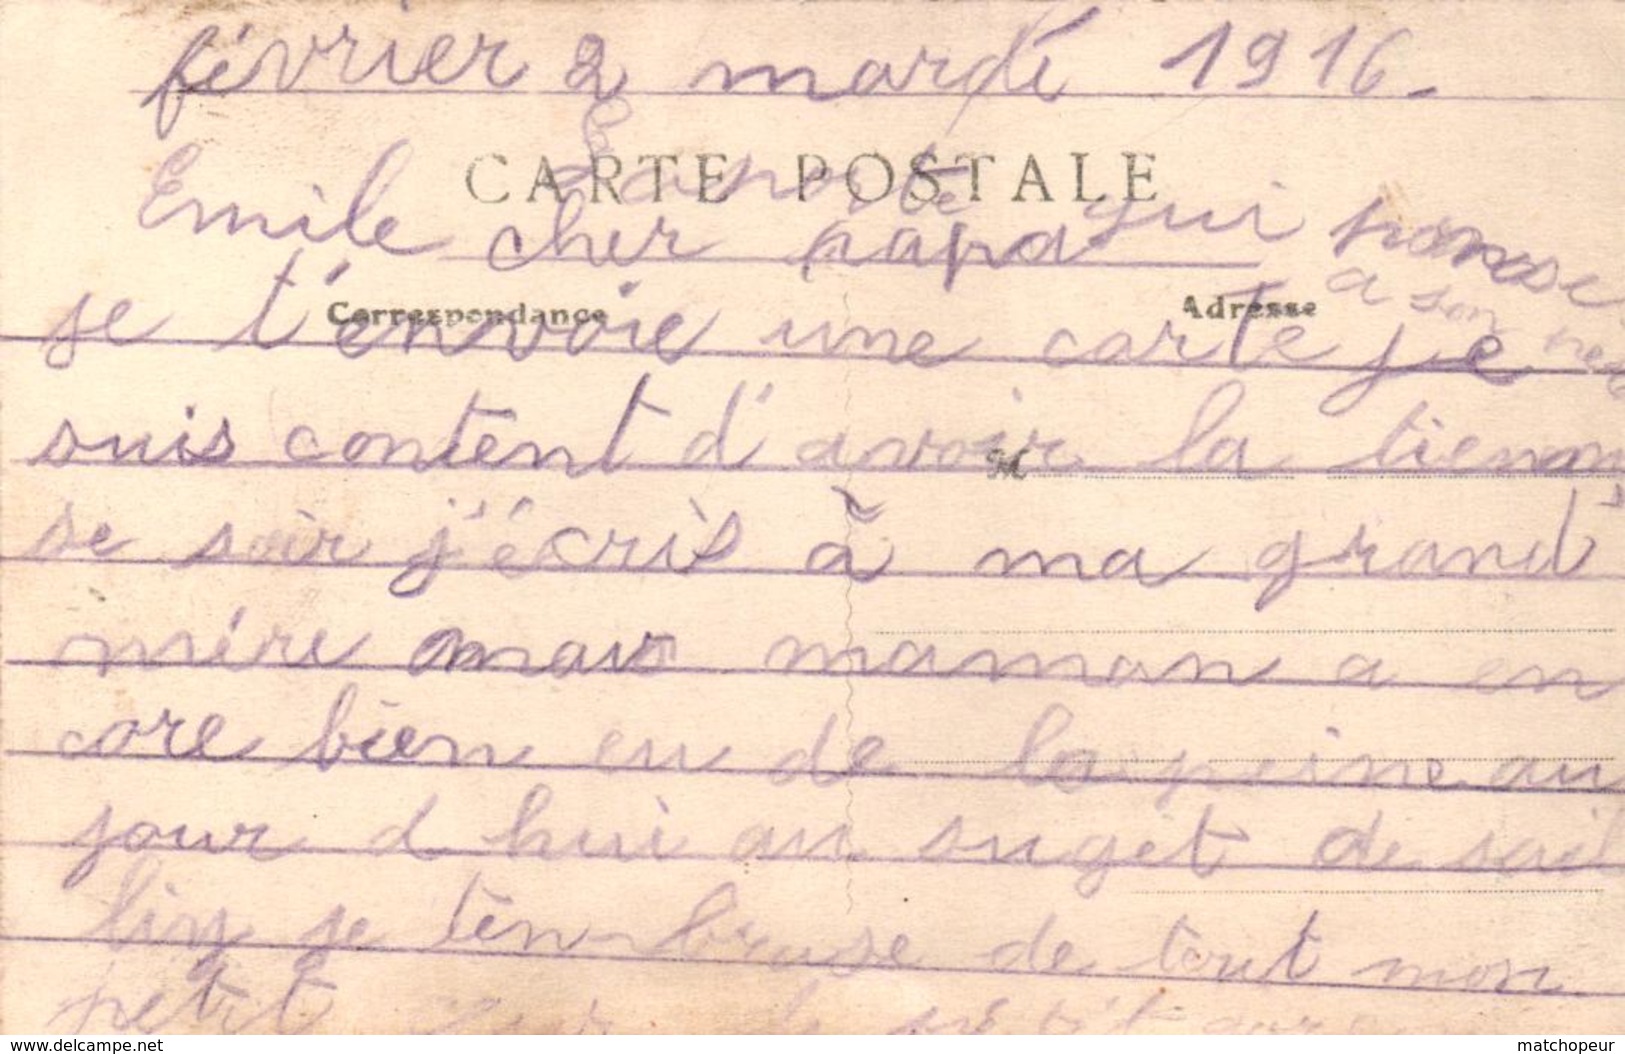 février 2 mardi 1916.
CARTE POSTALE
Emile cher papa qui panse
a son
Correspondance Adresse
je t'envoie une carte je
suis content d'avoir la tienn
se soir j'écris à ma grand
mére mais maman a en
core bien eu de la peine au
jour d hui au suget de sail
liy je t'en brase de tout mon
petit
delcampe.net
matchopeur